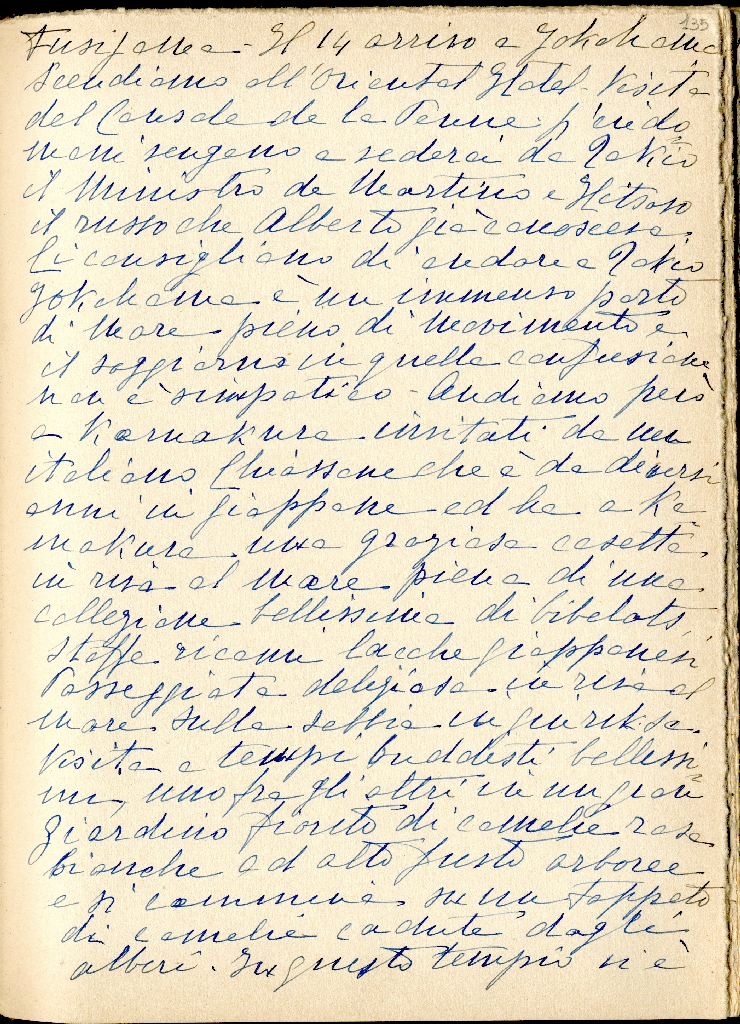 135
Fusijama - Il 14 arrivo a Jokohama
Scendiamo all'Oriental Hotel. Visita
del Console de la Penne. p l'indo=
mani vengono a vederci da Tokio
il Ministro de Martino e
il russo che Alberto già conosceva.
Ci consigliano di andare a Tokio
Jokohama è un immenso porto
di mare pieno di movimento e
il soggiorno in quella confusione
non è simpatico - Andiamo però
a Kamakura invitati da un
italiano che è da diversi
anni in giappone ed ha a Ka=
makura una graziosa casetta
in riva al mare piena di una
collezione bellissima di bibelots,
stoffe ricami lacche giapponesi
Passeggiata deliziosa in riva al
mare sulla sabbia in
Visita a tempi buddisti bellissi=
mi, uno fra gli altri in un gran
giardino fiorito di camelie rosa
bianche ad alto fusto arboree
e si cammina su un tappeto
di camelie cadute dagli
alberi. In questo tempio vi è